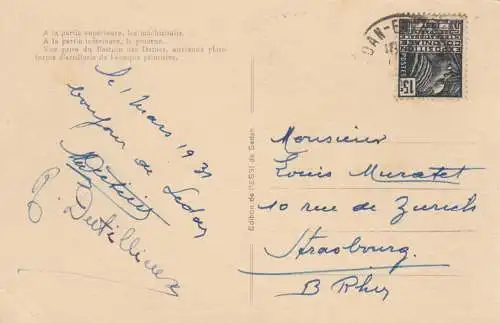 A la partie supérieure, les machicoulis.
A la partie inférieure, la poterne.
Vue prise du Bastion des Dames, ancienne plate-
forme d'artillerie de l'époque primitive.
le 1 Mars 1931
bonjour de Sedan
Edition de l'ESSI de Sedan
DAN
POSTES
15c
Monsieur
Louis Muratet
10 rue de Zurich
Strasbourg.
B Rhin